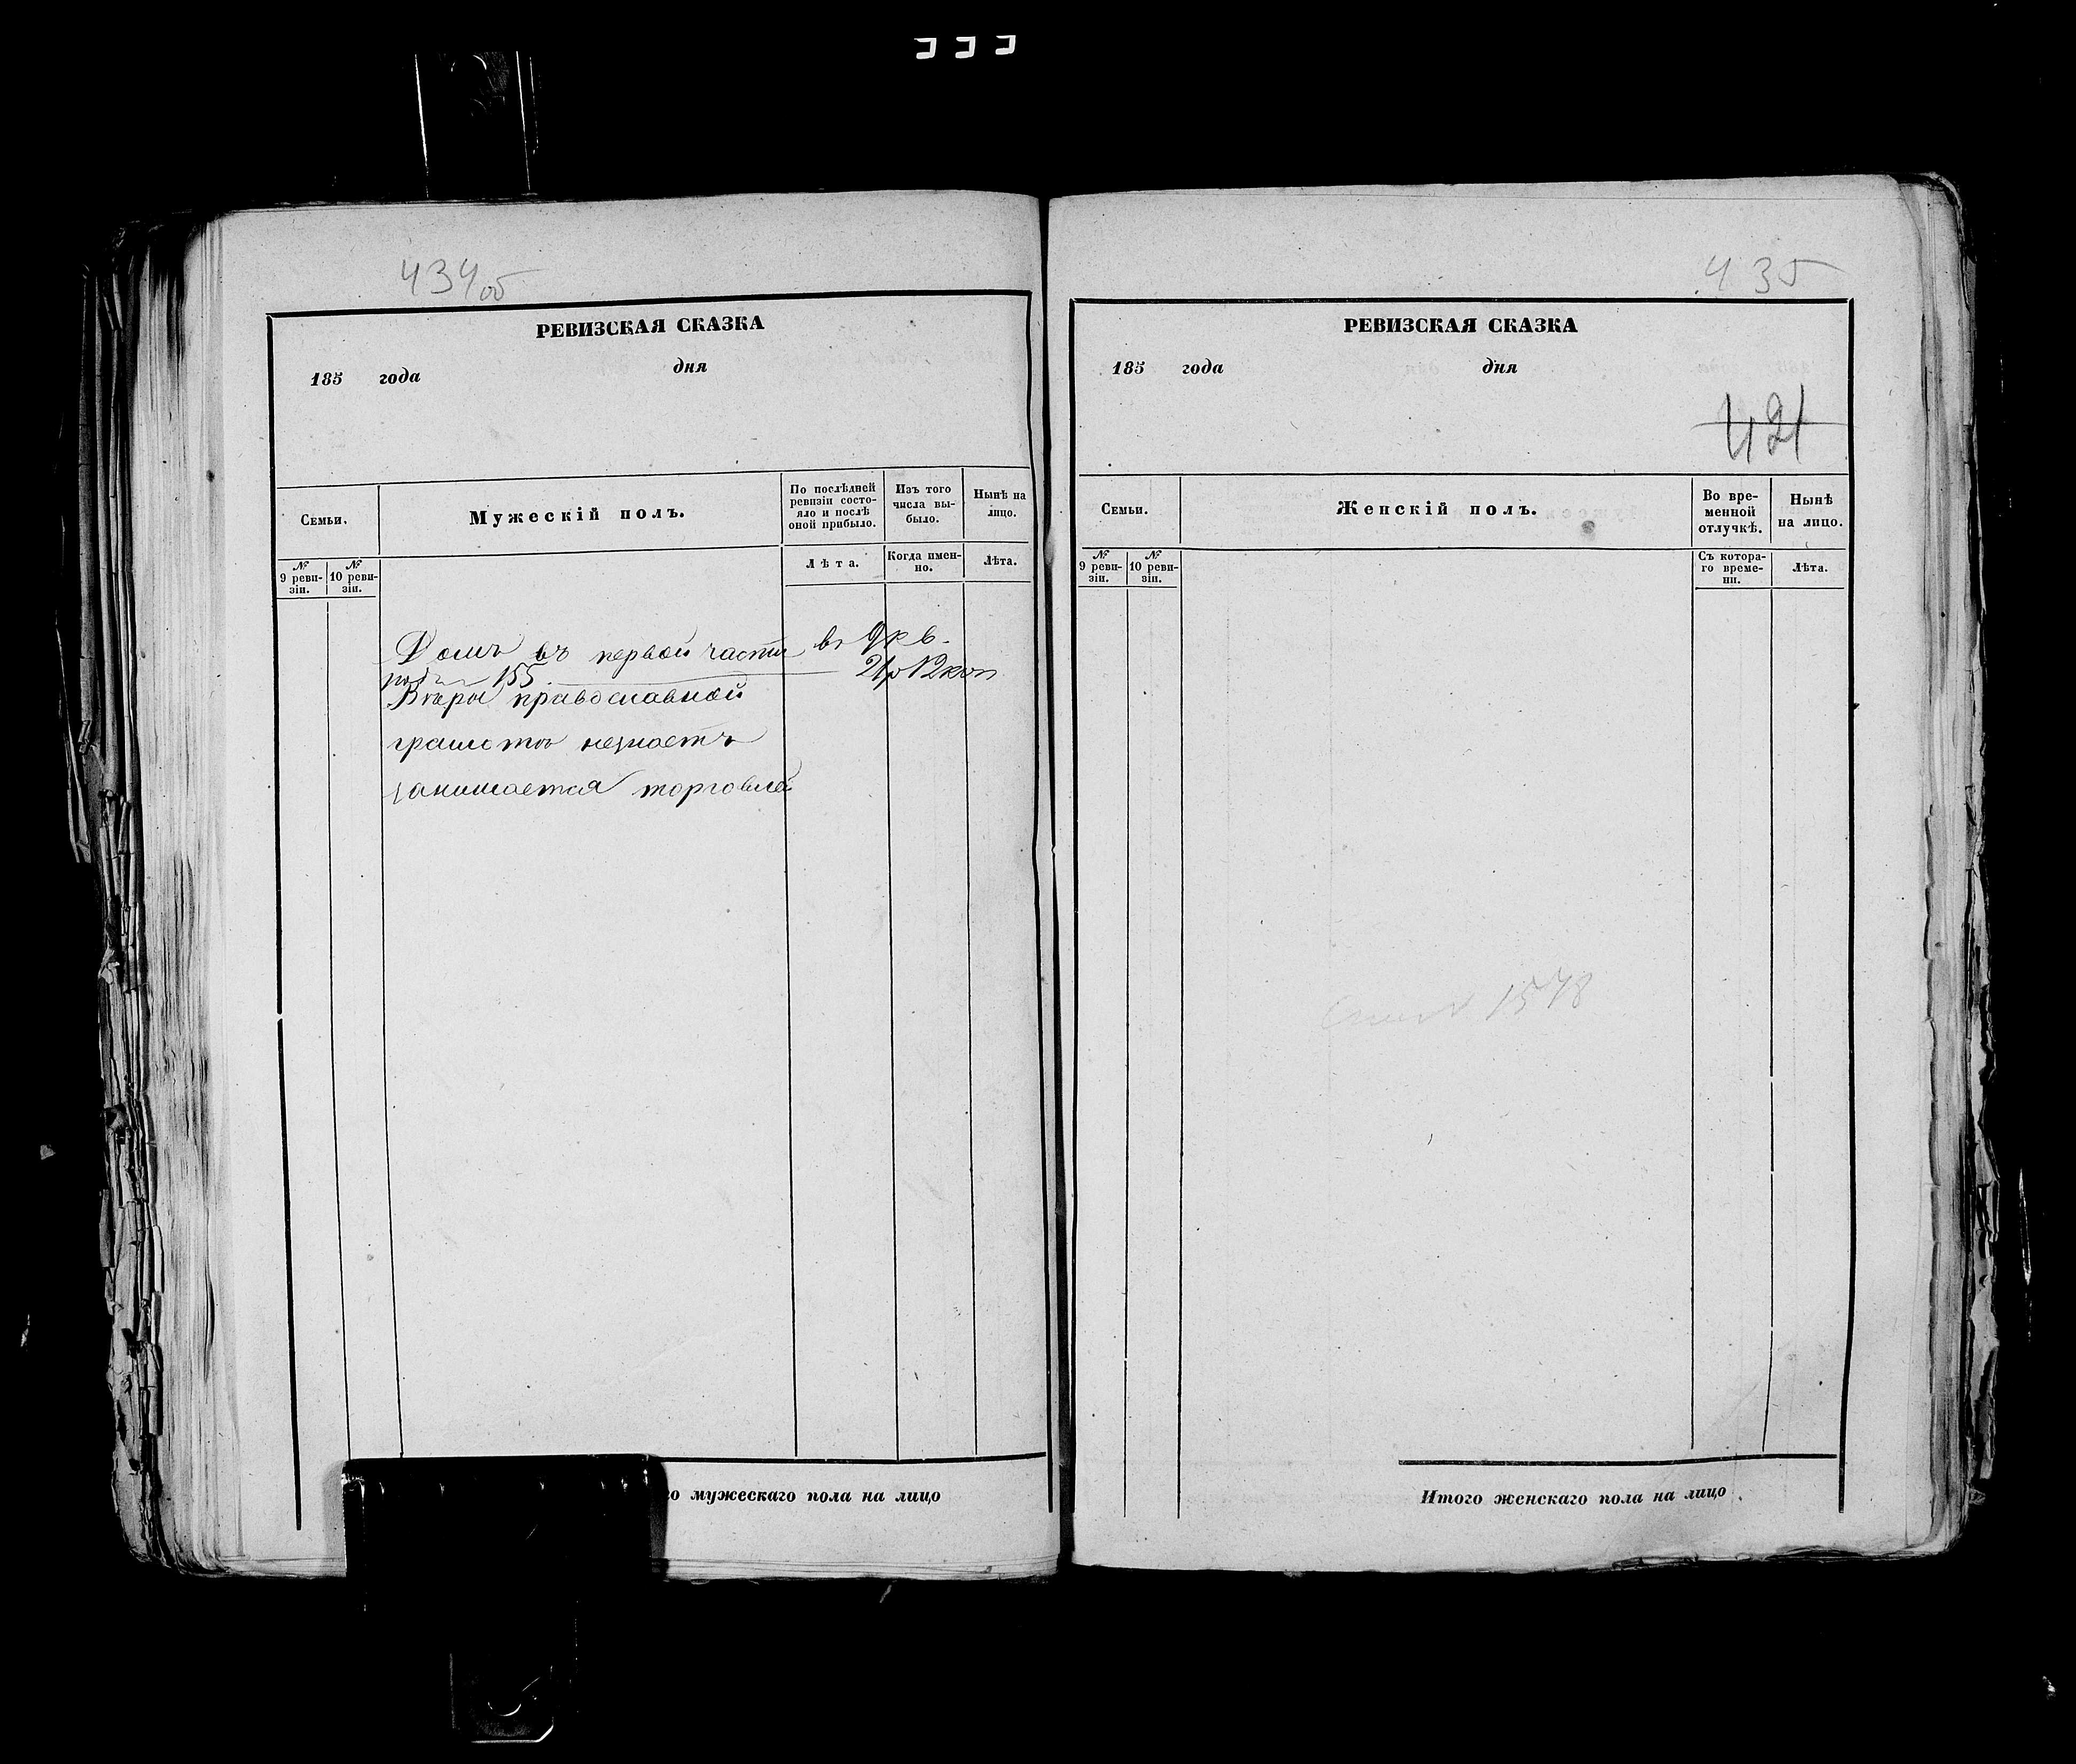 434об
РЕВИЗСКАЯ СКАЗКА
185 года дня
Семьи.
Мужескій полъ.
По послѣдней
ревизіи состо-
яло и послѣ
оной прибыло.
Изъ того
числа вы-
было.
Нынѣ на
лицо.
№
9 реви-
зіи.
№
10 реви-
зіи.
Лѣта.
Когда имен-
но.
Лѣта.
Домъ въ первой части въ 9 кв.
155 21р 12коп
Вѣры православной
грамоты незнаетъ
занимается торговлей
го мужескаго пола на лицо
435
РЕВИЗСКАЯ СКАЗКА
185 года дня
421
Семьи.
Женскій полъ.
Во вре-
менной
отлучкѣ.
Нынѣ
на лицо.
№
9 реви-
зіи.
№
10 реви-
зіи.
Съ котора-
го време-
ни.
Лѣта.
1578
Итого женскаго пола на лицо